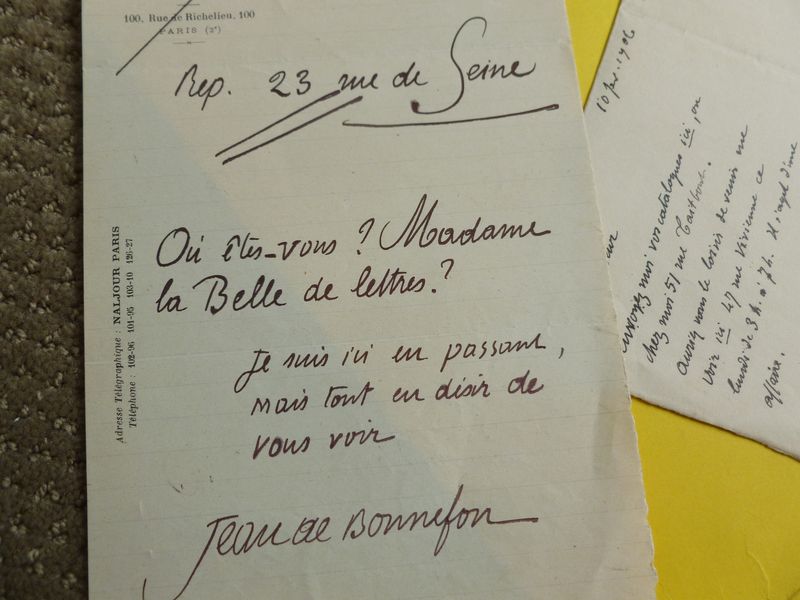 100, Rue de Richelieu, 100
PARIS (2e)
Rep. 23 rue de Seine
Où êtes-vous ? Madame
la Belle de lettres.?
Je suis ici en passant,
mais tout en désir de
vous voir
Jean de Bonnefon
Adresse Télégraphique : NALJOUR PARIS
Téléphone : 102-96 101-95 103-10 126-27
1906
envoyez moi vos catalogues ici, ou
chez moi 51 rue Taitbout.
auriez vous le loisir de venir me
voir ici 47 rue Vivienne ce
lundi de 3 h. à 7 h. Il s'agit d'une
affaire.